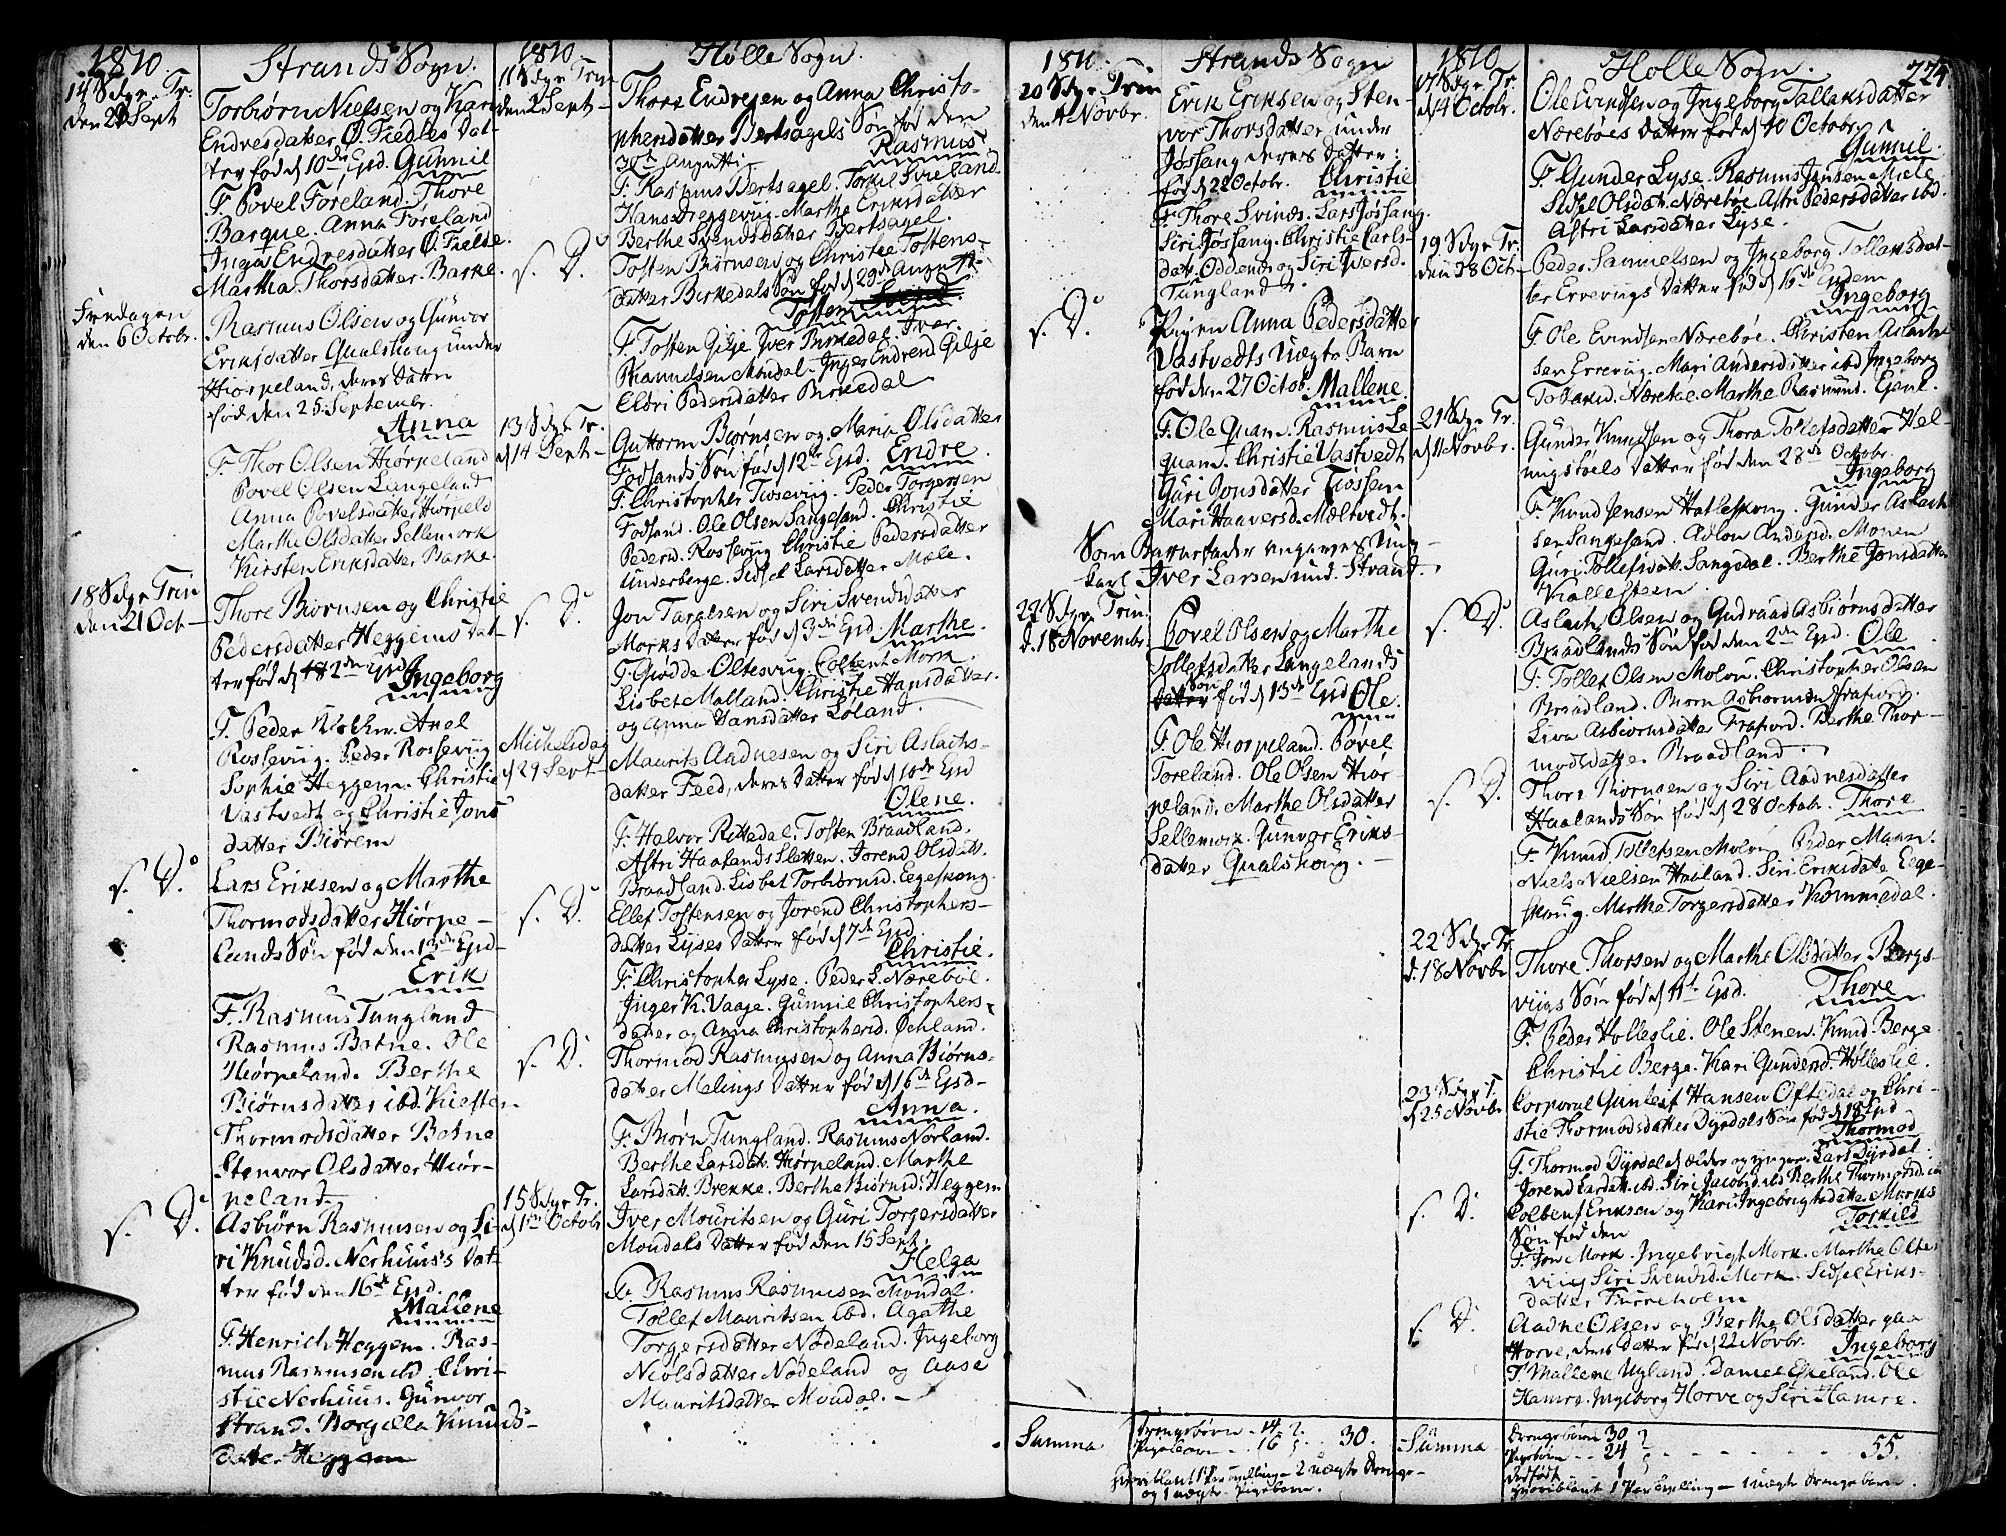 1810.
Strands Sogn.
14 Sdgr Tr:
den 2 Sept
Torbiørn Nielsen og Kari
Endresdatter Ø. Fiedles Dat-
ter fød d 10de Ejsd. Gunnil
F. Povel Føreland. Thore
Barque. Anna Føreland
Inga Endresdatter Ø. Fielde.
Martha Thorsdatter Barke.
Fredagen
den 6 Octobr.
Rasmus Olsen og Gunvor
Eriksdatter Qualshoug under
Hiørpeland, deres Datter
fød den 25 Septembr.
Anna
F. Thor Olsen Hiørpeland
Povel Olsen Langeland
Anna Povelsdatter Hiørpeld
Marthe Olsdatter Sellemork
Kirsten Eriksdatter Barke.
18 Sdgr Trin
den 21 Oct
Thore Biørnsen og Christie
Pedersdatter Heggems Dat-
ter fød d 12den Ejsd
Ingeborg
F. Peder
Rossevig. Peder Rossevig
Sophie Heggem. Christie
Vastvedt og Christie Jons
datter Biørem
s. D.
Lars Eriksen og Marthe
Thormodsdatter Hiørpe-
lands Søn fød den 13de Ejsd-
Erik
F. Rasmus Tungland
Rasmus Botne. Ole
Hiørpeland. Berthe
Biørnsdatter ibd. Kiesten
Thormodsdatter Botne
Stenvor Olsdatter Hiør-
peland
s. D.
Asbiørn Rasmusen og Si-
ri Knudsd. Nerhuus's Dat-
ter fød den 16de Ejsd.
Mallene
F. Henrich Heggem. Ras-
mus Rasmusen ibd. Chri-
stie Nerhuus. Gunvor
Strand. Borgilla Knuds-
datter Heggem
1810.
Hølle Sogn.
11 Sdgr Trin
den 2 Sept
Thore Endresen og Anna Christo-
phersdatter Bertsagels Søn fød den
30te Augusti
Rasmus
F. Rasmus Bertsagel. Torkil Svieland
Hans Dreggevig. Marthe Eriksdatter
Berthe Svendsdatter Bertsagel.
s. D.
Tosten Biørnsen og Christie Tostens-
datter Birkedals Søn fød d 29de August
Tosten
F. Tosten Gilje. Iver Birkedal. Iver
Rasmusen Mondal. Inger Endresd Gilje
Eldri Pedersdatter Birkedal
13 Sdgr Tr.
d 14 Sept
Guttorm Biørnsen og Maria Olsdatter
Fodlands Søn fød d 12te Ejsd. Endre
F. Christopher Tiosevig. Peder Torgersen
Fodland. Ole Olsen Sangesand. Christie
Pedersd. Rossevig Christie Pedersdatter
Underberge. Sidsel Larsdatter Mæle.
s. D.
Jon Targelsen og Siri Svendsdatter
Morks Datter fød d 3de Ejsd. Marthe
F. Giødde Oltesvig. Colbent Mork
Lisbet Malland. Christie Hansdatter
og Anna Hansdatter Løland.
Michelsdag
d 29 Sept
Maurits Aadnesen og Siri Aslachs-
datter Feed, deres Datter fød d 10de Ejsd
Olene.
F. Halvor Rettedal. Tosten Braadland.
Astri Haaland Sletten. Jorend Olsdatt.
Braadland. Lisbet Torbiørnsd. Eegeskong.
s. D.
Ellef Tostensen og Jorend Christophers-
datter Lyses Datter fød d 7de Ejsd
Christie.
F. Christopher Lyse. Peder L. Nærebøe.
Inger K. Vaaje. Gunnil Christophers-
datter og Anna Christophersd. Ochland.
s. D.
Thormod Rasmusen og Anna Biørns-
datter Melings Datter fød d 16de Ejsd-
Anna.
F. Biørn Tungland. Rasmus Norland.
Berthe Larsdatt. Hiørpeland. Marthe
Larsdatt. Brekke. Berthe Biørnsd. Heggem
15 Sdgr Tr.
d 1ste Octobr
Iver Mouritsen og Guri Torgersdatter
Mondals Datter fød den 15 Sept.
Helga
F. Rasmus Rasmusen Mondal.
Tollef Mauritsen ibd. Agathe
Torgersdatter Nødeland. Ingeborg
Neolsdatter Nødeland og Aase
Mauritsdatter Mondal.
1810.
Strands Sogn
20 Sdgr Trin
den 4 Novbr.
Erik Eriksen og Sten-
vor Thorsdatter under
Jøssang deres Datter
fød d 22 Octobr. Christie
F. Thore Svines. Lars Jøssang.
Siri Jøssang. Christie Carls-
datt. Oddenes og Siri Iversd.
Tungland
s. D.
Pigen Anna Pedersdatter
Vastvedts Uægte Barn
fød den 27 Octob. Mallene
F. Ole Quam. Rasmus Le
quam. Christie Vastvedt
Guri Jonsdatter Tiøssem
Mari Haaversd. Meltvedt.
Som Barnefader angaves Ung-
karl Iver Larsen und. Strand.
22 Sdgr Trin.
d. 18 Novembr.
Povel Olsen og Marthe
Tollefsdatter Langelands
Søn fød d 13de Ejsd Ole.
F. Ole Hiørpeland. Povel
Foreland. Ole Olsen Hiør-
peland. Marthe Olsdatter
Sellemork. Gunvor Eriks-
datter Qualshoug.
Summa
Drengebørn 14
Pigebørn 16
30.
Hvoriblant 1 Par Tvilling - 2 uægte Drenge-
og 1 uægte Pigebørn.
1810
Holle Sogn.
224.
17 Sdgr Tr.
d 14 Octobr.
Ole Evindsen og Ingeborg Tallaksdatter
Nærebøes Datter fød d 10 Octobr.
Gunnil.
F. Gunder Lyse. Rasmus Jensen Miele
Sidsel Olsdatt. Nærebøe Astri Pedersdatter ibd.
Astri Larsdatter Lyse.
19 Sdgr Tr.
den 28 Oct
Peder Samuelsen og Ingeborg Tollaksdat-
ter Errevigs Datter fød d 16de Ejsdem
Ingeborg
F. Ole Evindsen Nærebøe. Christen Aslach-
sen Errevig. Mari Andersdatter ibd Ingeborg
Tobiasd. Nærebøe. Marthe Rasmusd.
21 Sdgr Tr.
d 11 Novbr.
Gunder Knudsen og Thora Tollefsdatter Hel-
migstøels Datter fød den 28de Octobr.
Ingeborg
F. Knud Jensen Hatleskong. Gunder Aslach-
sen Sangesand. Andersd. Monen
Guri Tollefsdatt. Sangsdal. Berthe Jonsdatter
Kallesteen
s. D.
Aslach Olsen og Gudraad Asbiørnsdatter
Braadlands Søn fød den 2den Ejsd Ole
F. Tollef Olsen Moløu. Christopher Olsen
Braadland. Biørn Asbiørnsen Frafiord.
Liva Asbiørnsdatter Frafiord. Berthe Thor-
modsdatter Braadland
s. D.
Thore Thornsen og Siri Aadnesdatter
Haalands Søn fød d 28 Octobr. Thore
F. Knud Tollefsen Moløu Peder Maan.
Niels Nielsen Haaland. Siri Eriksdatter Eege-
skoug. Marthe Torgersdatter Kommedal.
22 Sdgr Tr.
d. 18 Novbr
Thore Thorsen og Marthe Olsdatter Bergs-
viigs Søn fød d 11te Ejsd. Thore
F. Peder Holleslie. Ole Stenen. Knud Berge
Christie Berge. Kari Gundersd. Holleslie.
23 Sdgr T.
d 25 Novbr
Corporal Gunleif Hansen Oftedal og Chri-
stie Thormodsdatter Dyrdals Søn fød d 18 Ejsd
Thormod
F. Thormod Dyrdal d ælder og yngre. Lars Dyrdal:
Jorend Larsdatt. ibd. Siri Jacobsd. ibd Berthe Thormodsd. ib
s. D.
Colbent Eriksen og Kari Ingebrigtsdatter Morks
Søn fød den
Torkild
F. Jon Mork. Ingebrigt Mork. Marthe Oltes
viig Siri Svendsd. Mork. Sidsel Eriks-
datter Furreholm
s. D.
Aadne Olsen og Berthe Olsdatter paa
Horve, deres Datter fød d 22 Novbr. Ingeborg
F. Mallene Uyland. Daniel Eikeland. Ole
Hamre. Ingeborg Horve og Siri Hamre.
Summa
Drengebørn 30
Pigebørn 24
Dødfødt 1
55.
Hvoriblant 1 Par Tvilling - 1 uægte Drengebarn.